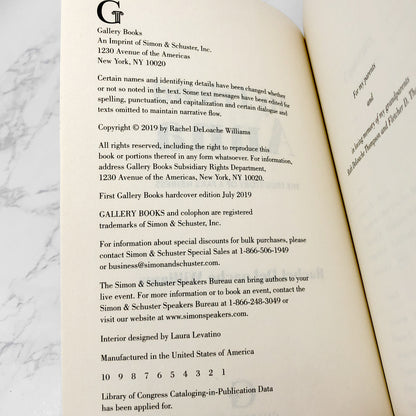 G
Gallery Books
An Imprint of Simon & Schuster, Inc.
1230 Avenue of the Americas
New York, NY 10020
Certain names and identifying details have been changed whether
or not so noted in the text. Some text messages have been edited for
spelling, punctuation, and capitalization and certain dialogue and
texts omitted to maintain narrative flow.
Copyright © 2019 by Rachel DeLoache Williams
All rights reserved, including the right to reproduce this
book or portions thereof in any form whatsoever. For information,
address Gallery Books Subsidiary Rights Department,
1230 Avenue of the Americas, New York, NY 10020.
First Gallery Books hardcover edition July 2019
GALLERY BOOKS and colophon are registered
trademarks of Simon & Schuster, Inc.
For information about special discounts for bulk purchases, please
contact Simon & Schuster Special Sales at 1-866-506-1949
or business@simonandschuster.com.
The Simon & Schuster Speakers Bureau can bring authors to your
live event. For more information or to book an event, contact the
Simon & Schuster Speakers Bureau at 1-866-248-3049 or
visit our website at www.simonspeakers.com.
Interior designed by Laura Levatino
Manufactured in the United States of America
10 9 8 7 6 5 4 3 2 1
Library of Congress Cataloging-in-Publication Data
has been applied for.
For my parents
and
in loving memory of my grandparents
Thompson and Fletcher D. Tho